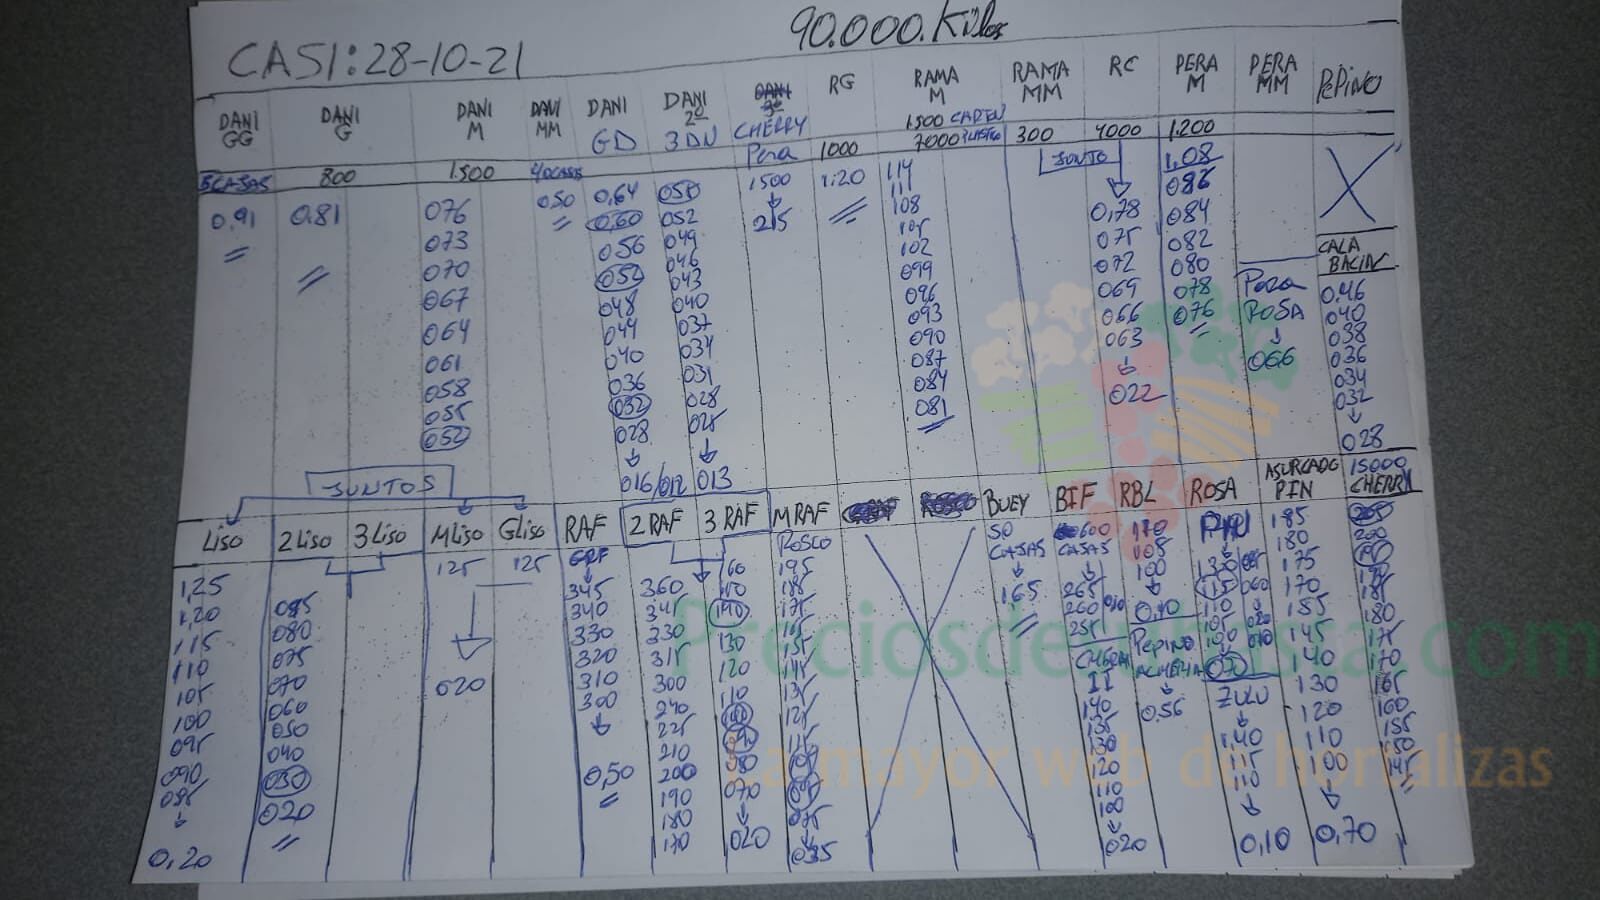 90.000 Kilos
CASI: 28-10-21
DANI GG
DANI G
DANI M
DANI MM
DANI GD
DANI 2º 3DN
CHERRY Pera
RG
RAMA M
RAMA MM
RC
PERA M
PERA MM
PEPINO
1.500 CARTON
800
1.500
1000
7000
300
4000
1.200
0,91
0,81
076
073
070
067
064
061
058
055
052
0,50
0,64
0,60
056
052
048
044
040
036
032
028
016/012
058
052
049
046
043
040
037
034
031
028
025
013
1500
215
1.20
114
111
108
105
102
099
096
093
090
087
084
081
JUNTO
0,78
075
072
069
066
063
022
1,08
086
084
082
080
078
076
Pera
ROSA
066
CALA
BACIN
0,46
040
038
036
034
032
028
JUNTOS
LISO
2 LISO
3 LISO
M LISO
G LISO
RAF
2 RAF
3 RAF
M RAF
BUEY
BIF
RBL
ROSA
ASURCADO PIN
15000 CHERRY
1,25
1,20
115
110
105
100
095
090
085
0,20
085
080
075
070
060
050
040
030
020
125
020
125
345
340
330
320
310
300
0,50
360
345
330
315
300
240
225
210
200
190
180
170
130
120
110
080
070
020
ROSCO
195
185
175
50
CASAS
165
600
CASAS
265
260
255
CHERRY
II
140
135
130
120
110
100
020
110
105
100
0,10
PEPINO
ALMERIA
0,56
070
ZULU
140
115
110
0,10
185
180
175
170
155
145
140
130
120
110
100
0,70
200
180
175
170
165
160
155
150
145
Preciosdelasubasta.com
La mayor web de hortalizas